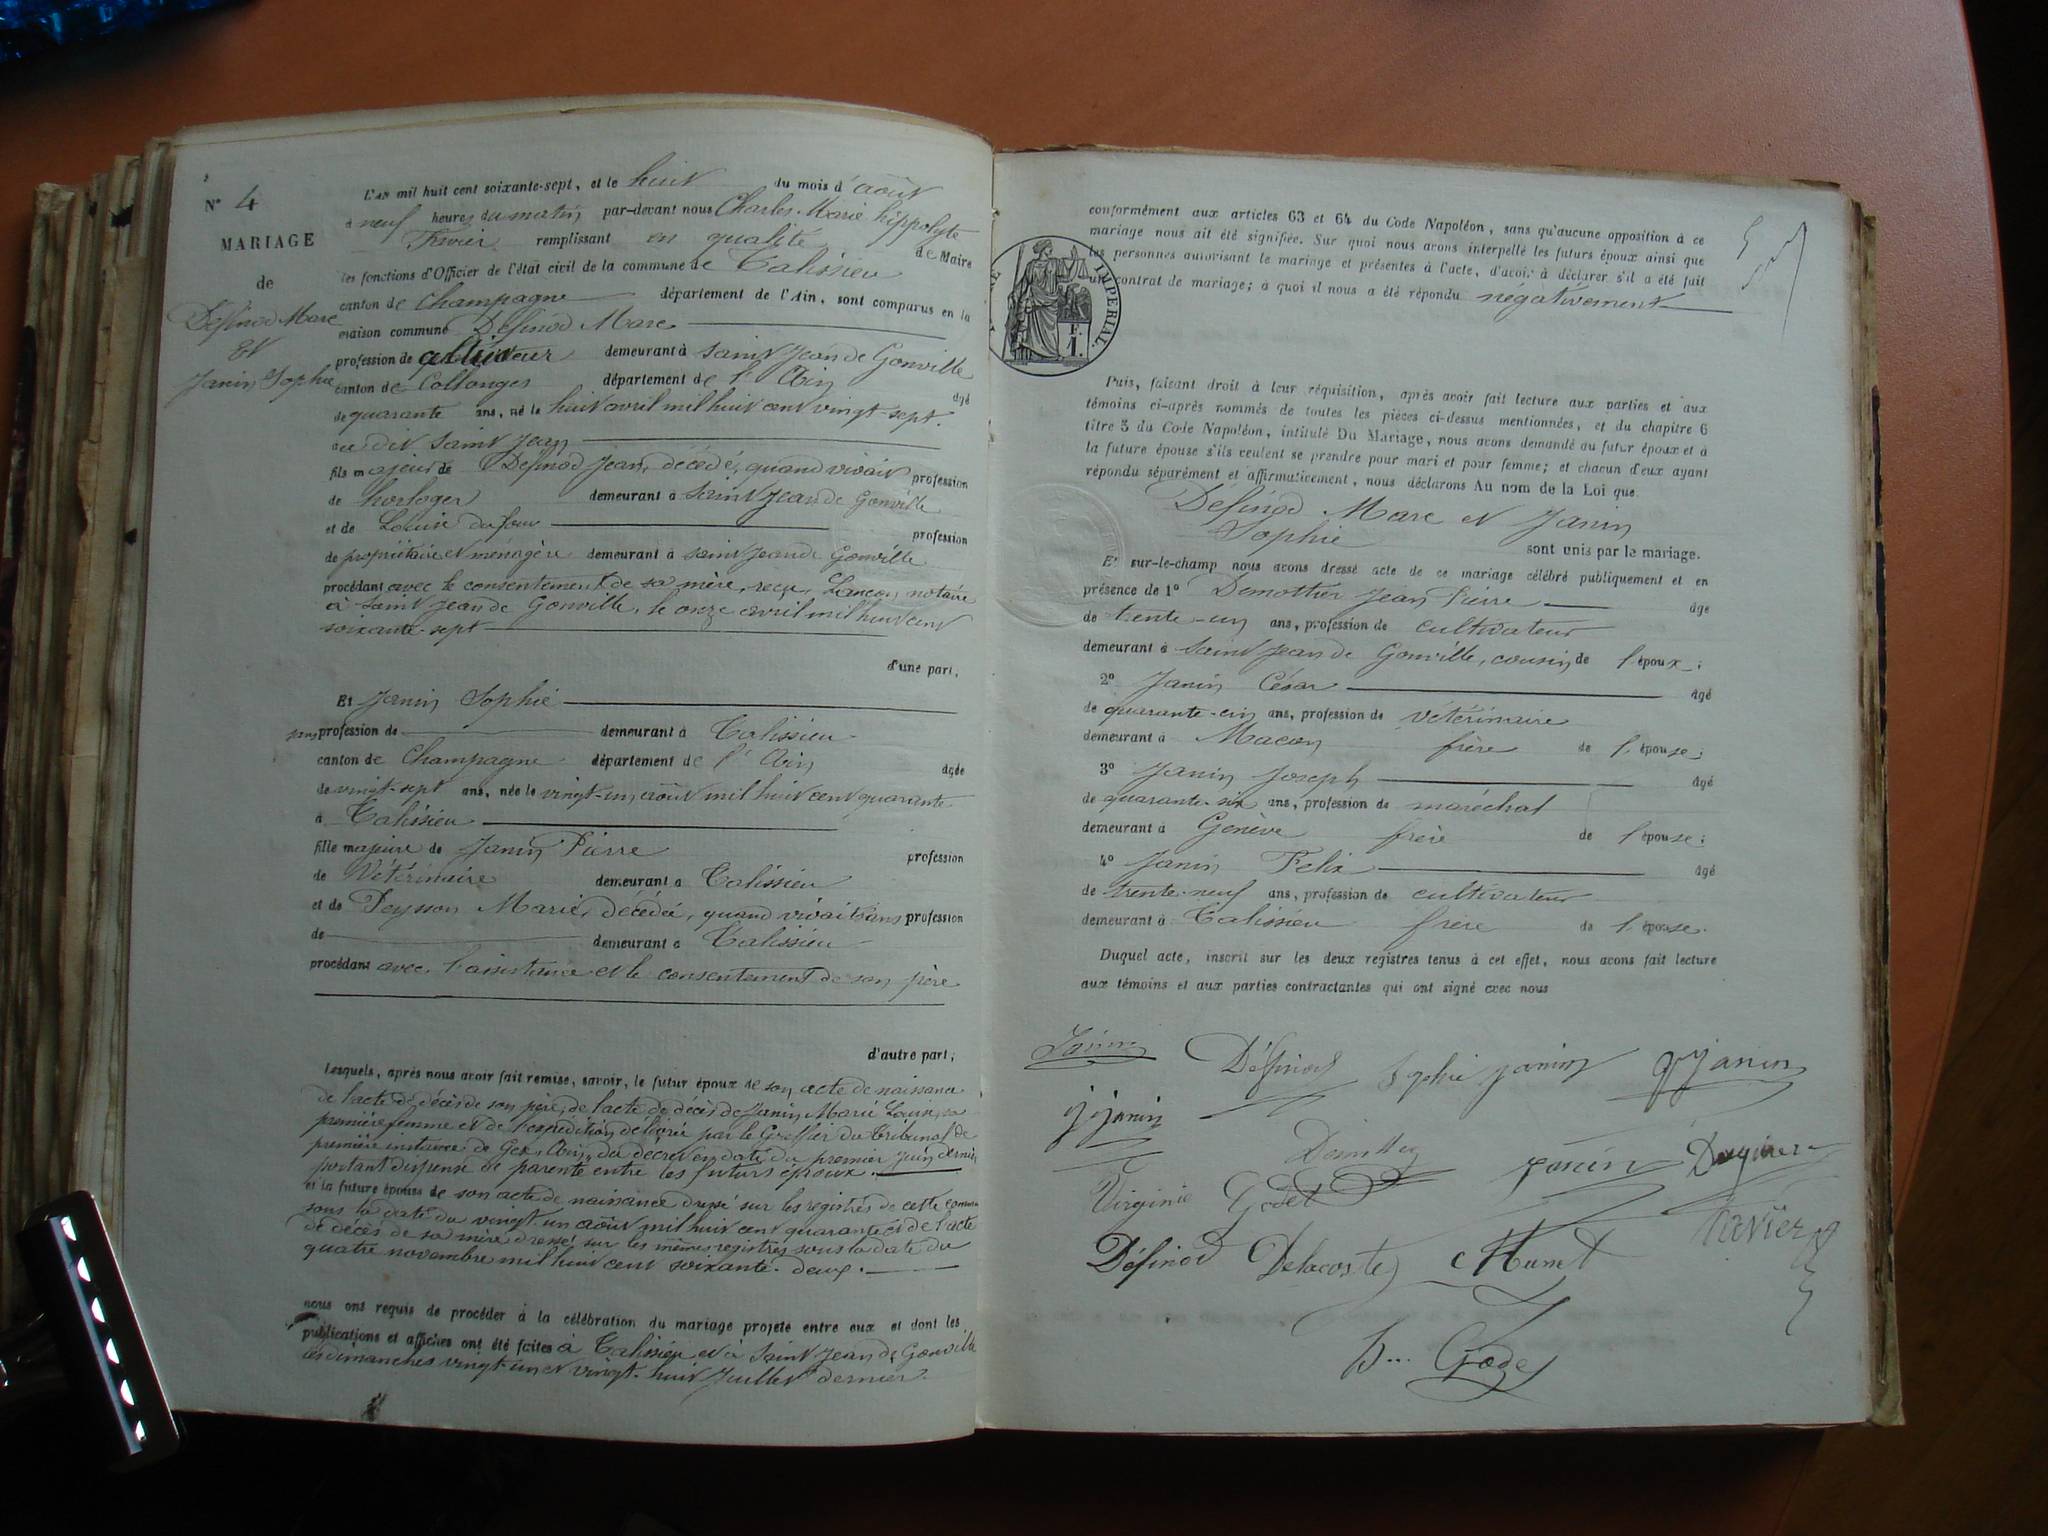 N° 4
MARIAGE
de
Définod Marc
Et
Janin Sophie
L'AN mil huit cent soixante-sept, et le huit du mois d'août
à neuf heures du matin par-devant nous Charles Marie hippolyte
remplissant en qualité de Maire
les fonctions d'Officier de l'état civil de la commune de Talissieu
canton de Champagne département de l'Ain, sont comparus en la
maison commune Définod Marc
profession de demeurant à Saint Jean de Gonville
canton de Collonges département de l'Ain âgé
de quarante ans, né le huit avril mil huit cent vingt-sept.
au dit Saint Jean
fils majeur de Définod Jean, décédé, quand vivait profession
de horloger demeurant à Saint Jean de Gonville
et de Louise dufour profession
de propriétaire et ménagère demeurant à Saint Jean de Gonville
procédant avec le consentement de sa mère, reçu Lançon, notaire
à Saint Jean de Gonville, le onze avril mil huit cent
soixante-sept
d'une part,
Et Janin Sophie
sans profession de demeurant à Talissieu
canton de Champagne département de l'Ain âgée
de vingt-sept ans, née le vingt-un août mil huit cent quarante
à Talissieu
fille majeure de Janin Pierre profession
de Vétérinaire demeurant à Talissieu
et de Peysson Marie, décédée, quand vivait sans profession
de demeurant à Talissieu
procédant avec l'assistance et le consentement de son père
d'autre part,
Lesquels, après nous avoir fait remise, savoir, le futur époux de son acte de naissance
de l'acte de décès de son père, de l'acte de décès de Janin Marie Louise, sa
première femme et de l'expédition délivrée par le Greffier du Tribunal de
première instance de Gex, (Ain), du décret en date du premier Juin dernier
portant dispense de parenté entre les futurs époux.
et la future épouse de son acte de naissance dressé sur les registres de cette commune
sous la date du vingt-un août mil huit cent quarante et de l'acte
de décès de sa mère dressé sur les mêmes registres sous la date du
quatre novembre mil huit cent soixante-deux.
nous ont requis de procéder à la célébration du mariage projeté entre eux et dont les
publications et affiches ont été faites à Talissieu et à Saint Jean de Gonville
les dimanches vingt-un et vingt-huit Juillet dernier.
IMPERIAL
conformément aux articles 63 et 64 du Code Napoléon, sans qu'aucune opposition à ce
mariage nous ait été signifiée. Sur quoi nous avons interpellé les futurs époux ainsi que
les personnes autorisant le mariage et présentes à l'acte, d'avoir à déclarer s'il a été fait
un contrat de mariage; à quoi il nous a été répondu négativement
Puis, faisant droit à leur réquisition, après avoir fait lecture aux parties et aux
témoins ci-après nommés de toutes les pièces ci-dessus mentionnées, et du chapitre 6
titre 5 du Code Napoléon, intitulé Du Mariage, nous avons demandé au futur époux et à
la future épouse s'ils veulent se prendre pour mari et pour femme; et chacun d'eux ayant
répondu séparément et affirmativement, nous déclarons Au nom de la Loi que
Définod Marc et Janin
Sophie sont unis par le mariage.
Et sur-le-champ nous avons dressé acte de ce mariage célébré publiquement et en
présence de 1° Demottier Jean Pierre âgé
de trente-un ans, profession de cultivateur
demeurant à Saint Jean de Gonville, cousin de l'époux;
2° Janin César âgé
de quarante-cinq ans, profession de vétérinaire
demeurant à Macon frère de l'épouse;
3° Janin Joseph âgé
de quarante-six ans, profession de maréchal
demeurant à Genève frère de l'épouse;
4° Janin Felix âgé
de trente-neuf ans, profession de cultivateur
demeurant à Talissieu frère de l'épouse.
Duquel acte, inscrit sur les deux registres tenus à cet effet, nous avons fait lecture
aux témoins et aux parties contractantes qui ont signé avec nous
Janin Définod Sophie Janin Janin
J Janin
Janin
Virginie Godet
Définod Delacoste